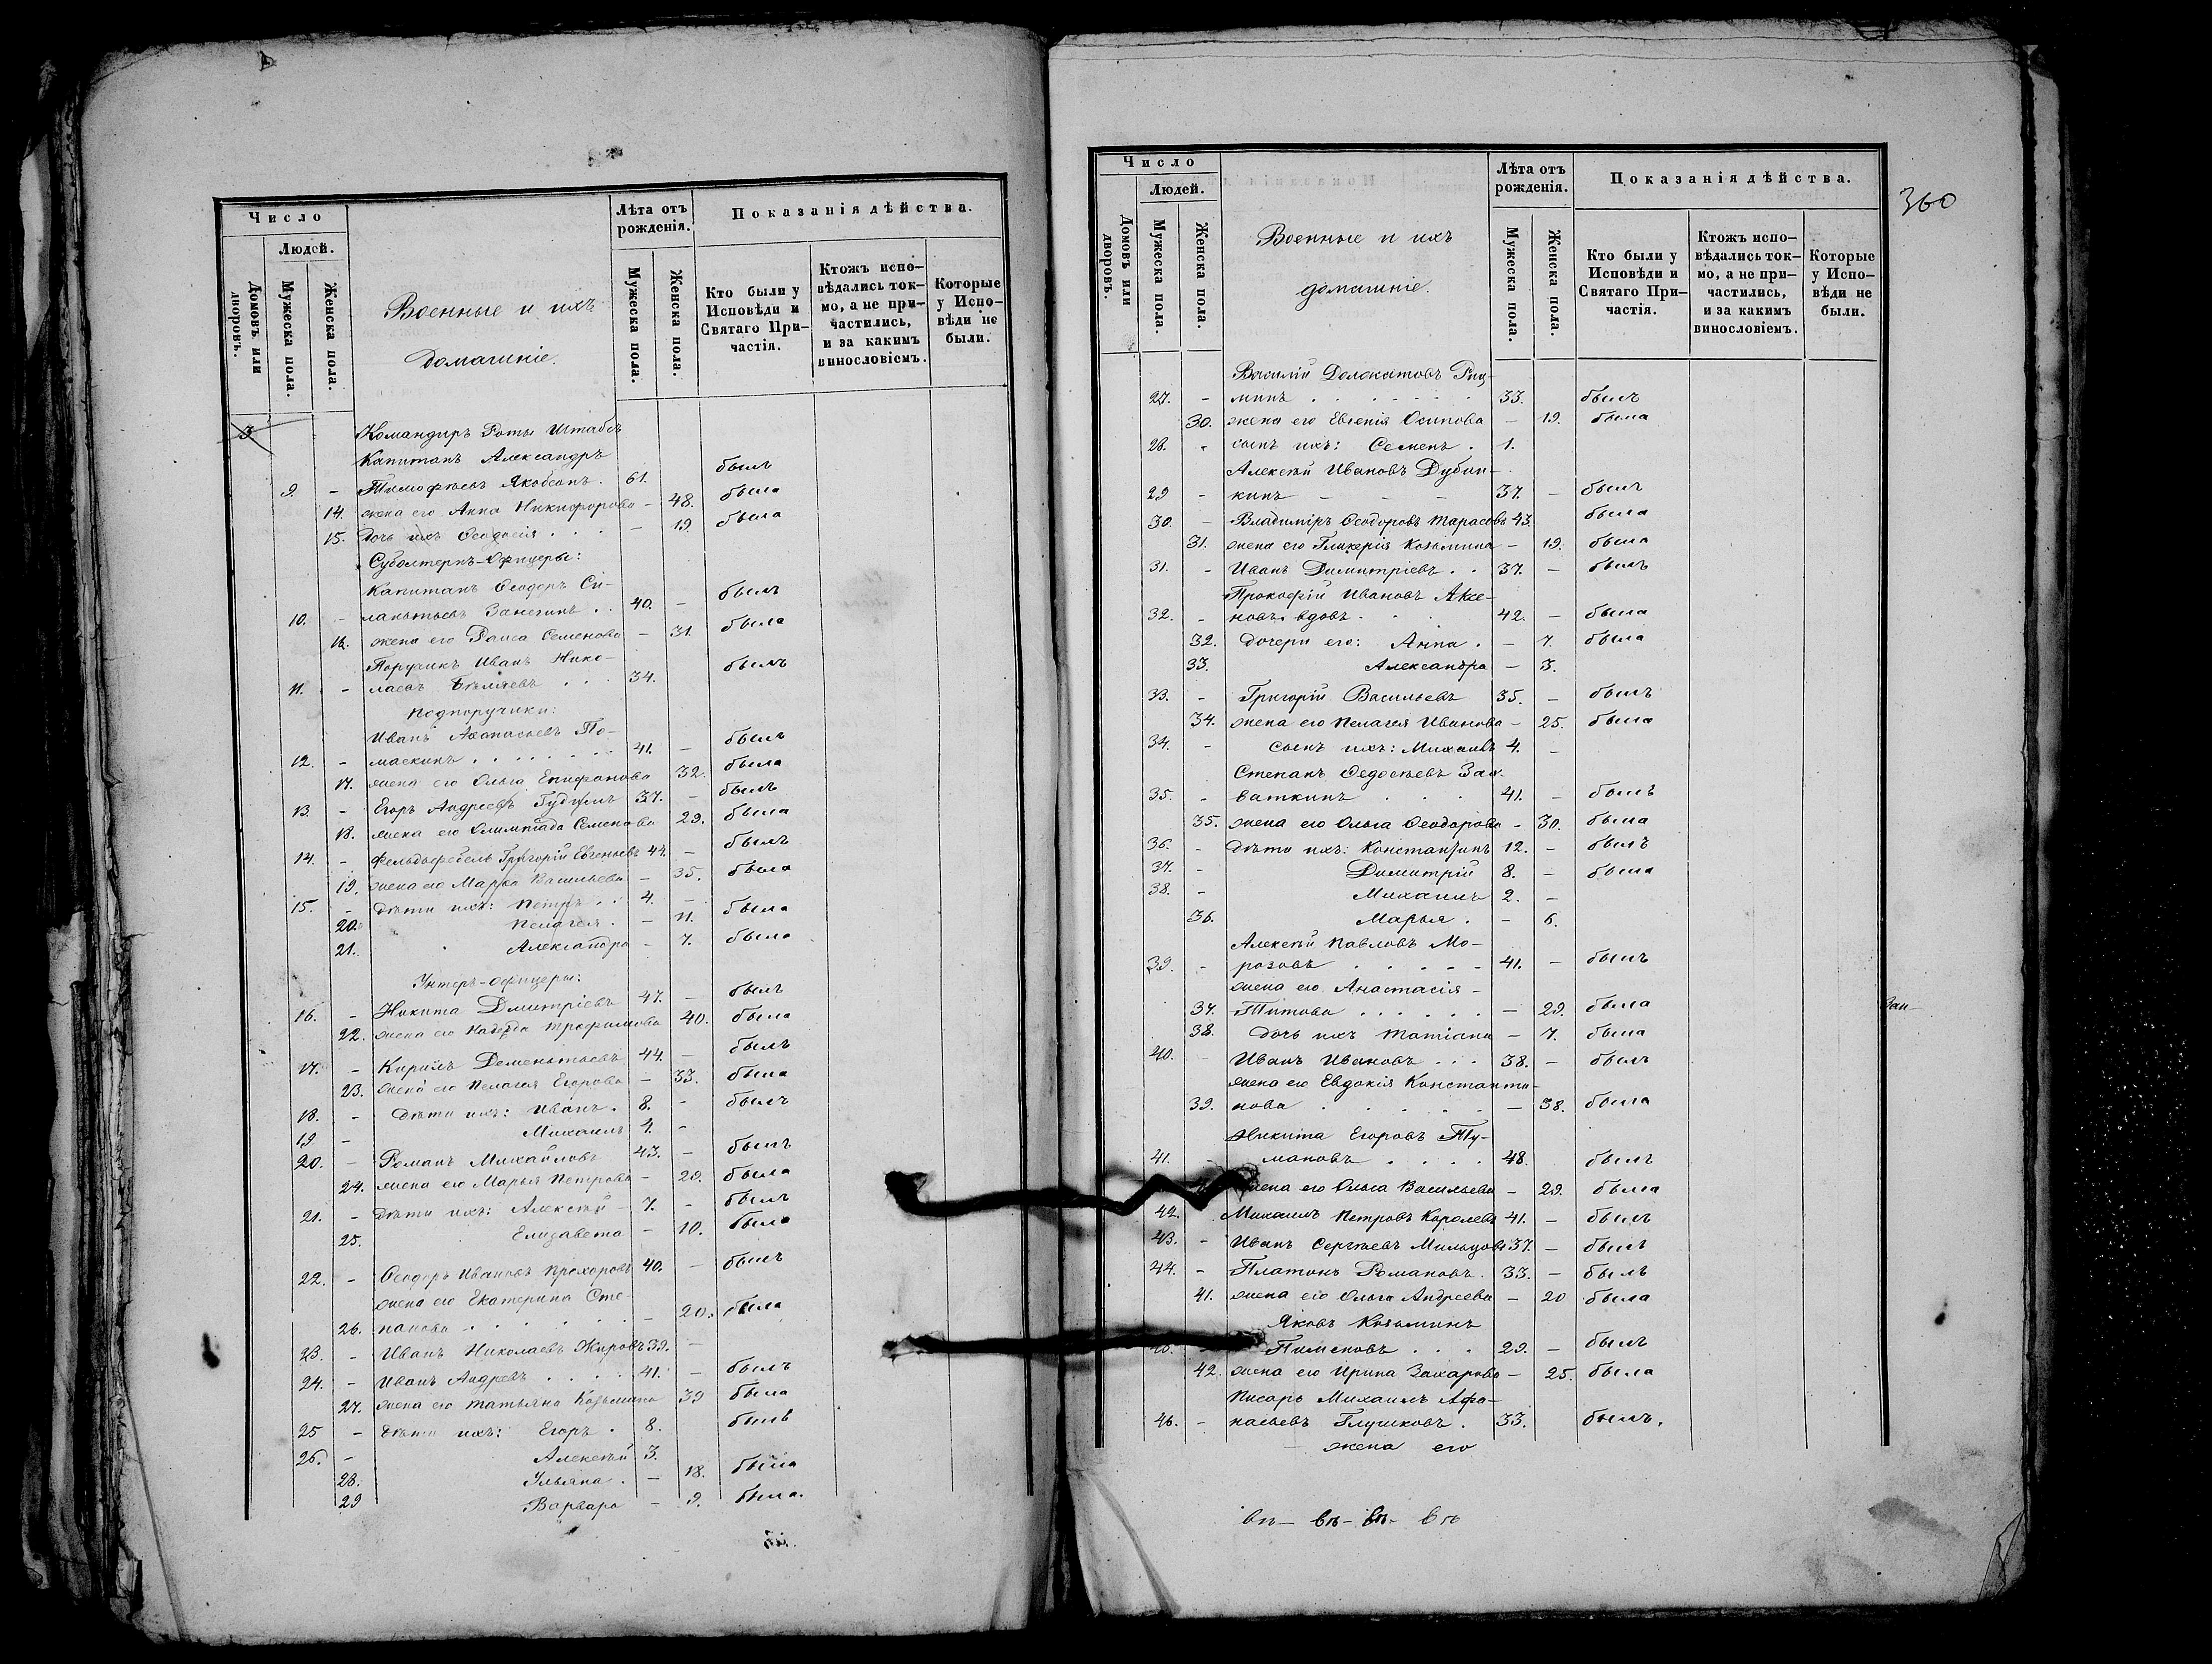 Число
Людей.
Домовъ или дворовъ.
Мужеска пола.
Женска пола.
Военные и ихъ
Домашніе.
Лѣта отъ рожденія.
Мужеска пола.
Женска пола.
Показанія дѣйства.
Кто были у Исповѣди и Святаго Причастія.
Ктожъ исповѣдались токмо, а не причастились, и за какимъ винословіемъ.
Которые у Исповѣди не были.
3 Командиръ Роты Штабсъ
Капитанъ Александръ
9. - Тимофѣевъ Якобсонъ. 61. былъ
14. жена его Анна Никифорова - 48. была
15. Дочь ихъ Ѳеодосія . . . - 19. была
Субалтернъ-Офицеры:
Капитанъ Ѳеодоръ Си-
10. - лантьевъ Занегинъ . . 40. - былъ
16. жена его Раиса Семенова - 31. была
Поручикъ Иванъ Нико-
11. - лаевъ Бѣляевъ . . . 34. былъ
Подпоручики:
Иванъ Аѳонасьевъ То-
12. - маскинъ . . . . . . 41. - былъ
17. жена его Ольга Епифанова 32. была
13. - Егоръ Андреевъ 37. - былъ
18. жена его Олимпіада Семенова 29. была
14. - Фельдфебель Григорій Евгеньевъ 44. - былъ
19. жена его Марѳа Васильева - 35. была
15. - Дѣти ихъ: Петръ . . 4. -
20. Пелагея . - 11. была
21. Александра - 7. была
Унтеръ-офицеры:
16. - Никита Дмитріевъ 47. - былъ
22. жена его Надежда Трофимова 40. была
17. - Кирилъ Дементьевъ 44. - былъ
23. жена его Пелагея Егорова - 33. была
18. - Дѣти ихъ: Иванъ . 8. - былъ
19 - Михаилъ 4. -
20. - Романъ Михайловъ 43. - былъ
24. жена его Марья Петрова - 29. была
21. - Дѣти ихъ: Алексѣй - 7. - былъ
25. Елизавета - 10. была
22. - Ѳеодоръ Ивановъ Прохоровъ 40. - былъ
жена его Екатерина Сте-
26. панова . . . . . . - 20. была
23. - Иванъ Николаевъ Жировъ 39. -
24. - Иванъ Андреевъ . . . . 41. - былъ
27. жена его Татьяна Козьмина 39 была
25 - Дѣти ихъ: Егоръ . 8. былъ
26. - Алексѣй 3.
28. Ульяна . - 18. была
29 Варвара - 9. была.
Число
Людей.
Домовъ или дворовъ.
Мужеска пола.
Женска пола.
Военные и ихъ
домашніе.
Лѣта отъ рожденія.
Мужеска пола.
Женска пола.
Показанія дѣйства.
Кто были у Исповѣди и Святаго Причастія.
Ктожъ исповѣдались токмо, а не причастились, и за какимъ винословіемъ.
Которые у Исповѣди не были.
360
Василій
27. - . . . . . . . 33. былъ
30. жена его Евгенія Осипова - 19. была
28. - сынъ ихъ: Семенъ . 1.
Алексѣй Ивановъ Дубин-
29 - кинъ - - - 37. - былъ
30. - Владиміръ Ѳеодоровъ Тарасовъ 43. была
31. жена его Гликерія Козьмина - 19. была
31. - Иванъ Димитріевъ . . 37. - былъ
Прокофій Ивановъ Аксе-
32. - новъ вдовъ . . 42. - была
32. Дочери его: Анна . - 7. была
33. Александра - 3.
33. - Григорій Васильевъ 35. - былъ
34. жена его Пелагея Иванова - 25. была
34. - сынъ ихъ: Михаилъ 4. -
Степанъ Ѳедосѣевъ Зах-
35. - ваткинъ . . . 41. - былъ
35. жена его Ольга Ѳеодорова - 30. была
36. - Дѣти ихъ: Константинъ 12. - былъ
37. - Димитрій 8. - была
38. - Михаилъ 2. -
36. Марья . - 6.
Алексѣй Павловъ Мо-
39. - розовъ . . . . - 41. - былъ
жена его Анастасія -
37. Титова . . . . . . - 29. была
38. Дочь ихъ Татіана - 7. была
40. - Иванъ Ивановъ . . . 38. - былъ
жена его Евдокія Константи-
39. нова . . . . . . - 38. была
Никита Егоровъ Ту-
41. - мановъ . . . . 48. былъ
жена его Ольга Васильева - 29. была
42. Михаилъ Петровъ Королевъ 41. - былъ
43. - Иванъ Сергѣевъ Мильцовъ 37. - былъ
44. - Платонъ Романовъ . 33. - былъ
41. жена его Ольга Андреева - 20 была
Яковъ Козьминъ
Пименовъ . . . 29. - былъ
42. жена его Ирина Захарова - 25. была
Писарь Михаилъ Афо-
46. - насьевъ Глушковъ . 33. былъ.
жена его